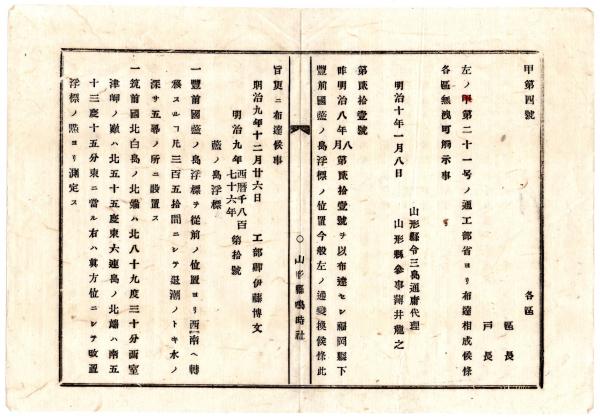 甲第四號
各區
區長
戸長
左ノ甲第二十一号ノ通工部省ヨリ布達相成候條
各區無洩可觸示事
山形縣令三島通庸代理
明治十年一月八日
山形縣參事薄井龍之
第貳拾壹號
昨明治八年八月第貳拾壹號ヲ以布達セシ福岡縣下
豐前國藍ノ島浮標ノ位置今般左ノ通變換候條此
〇山形縣鳴時社
旨更ニ布達候事
明治九年十二月廿六日
工部卿伊藤博文
明治九年
西暦千八百
七十六年
第拾號
藍ノ島浮標
一豐前國藍ノ島浮標ヲ從前ノ位置ヨリ西南ヘ轉
移スルコ凡三百五拾間ニシテ退潮ノトキ水ノ
深サ五尋ノ所ニ設置ス
一筑前國北白島ノ北端ハ北八十九度三十分西室
津岬ノ巔ハ北五十五度東六連島ノ北端ハ南五
十三度十五分東ニ當ル右ハ眞方位ニシテ改置
浮標ノ點ヨリ測定ス